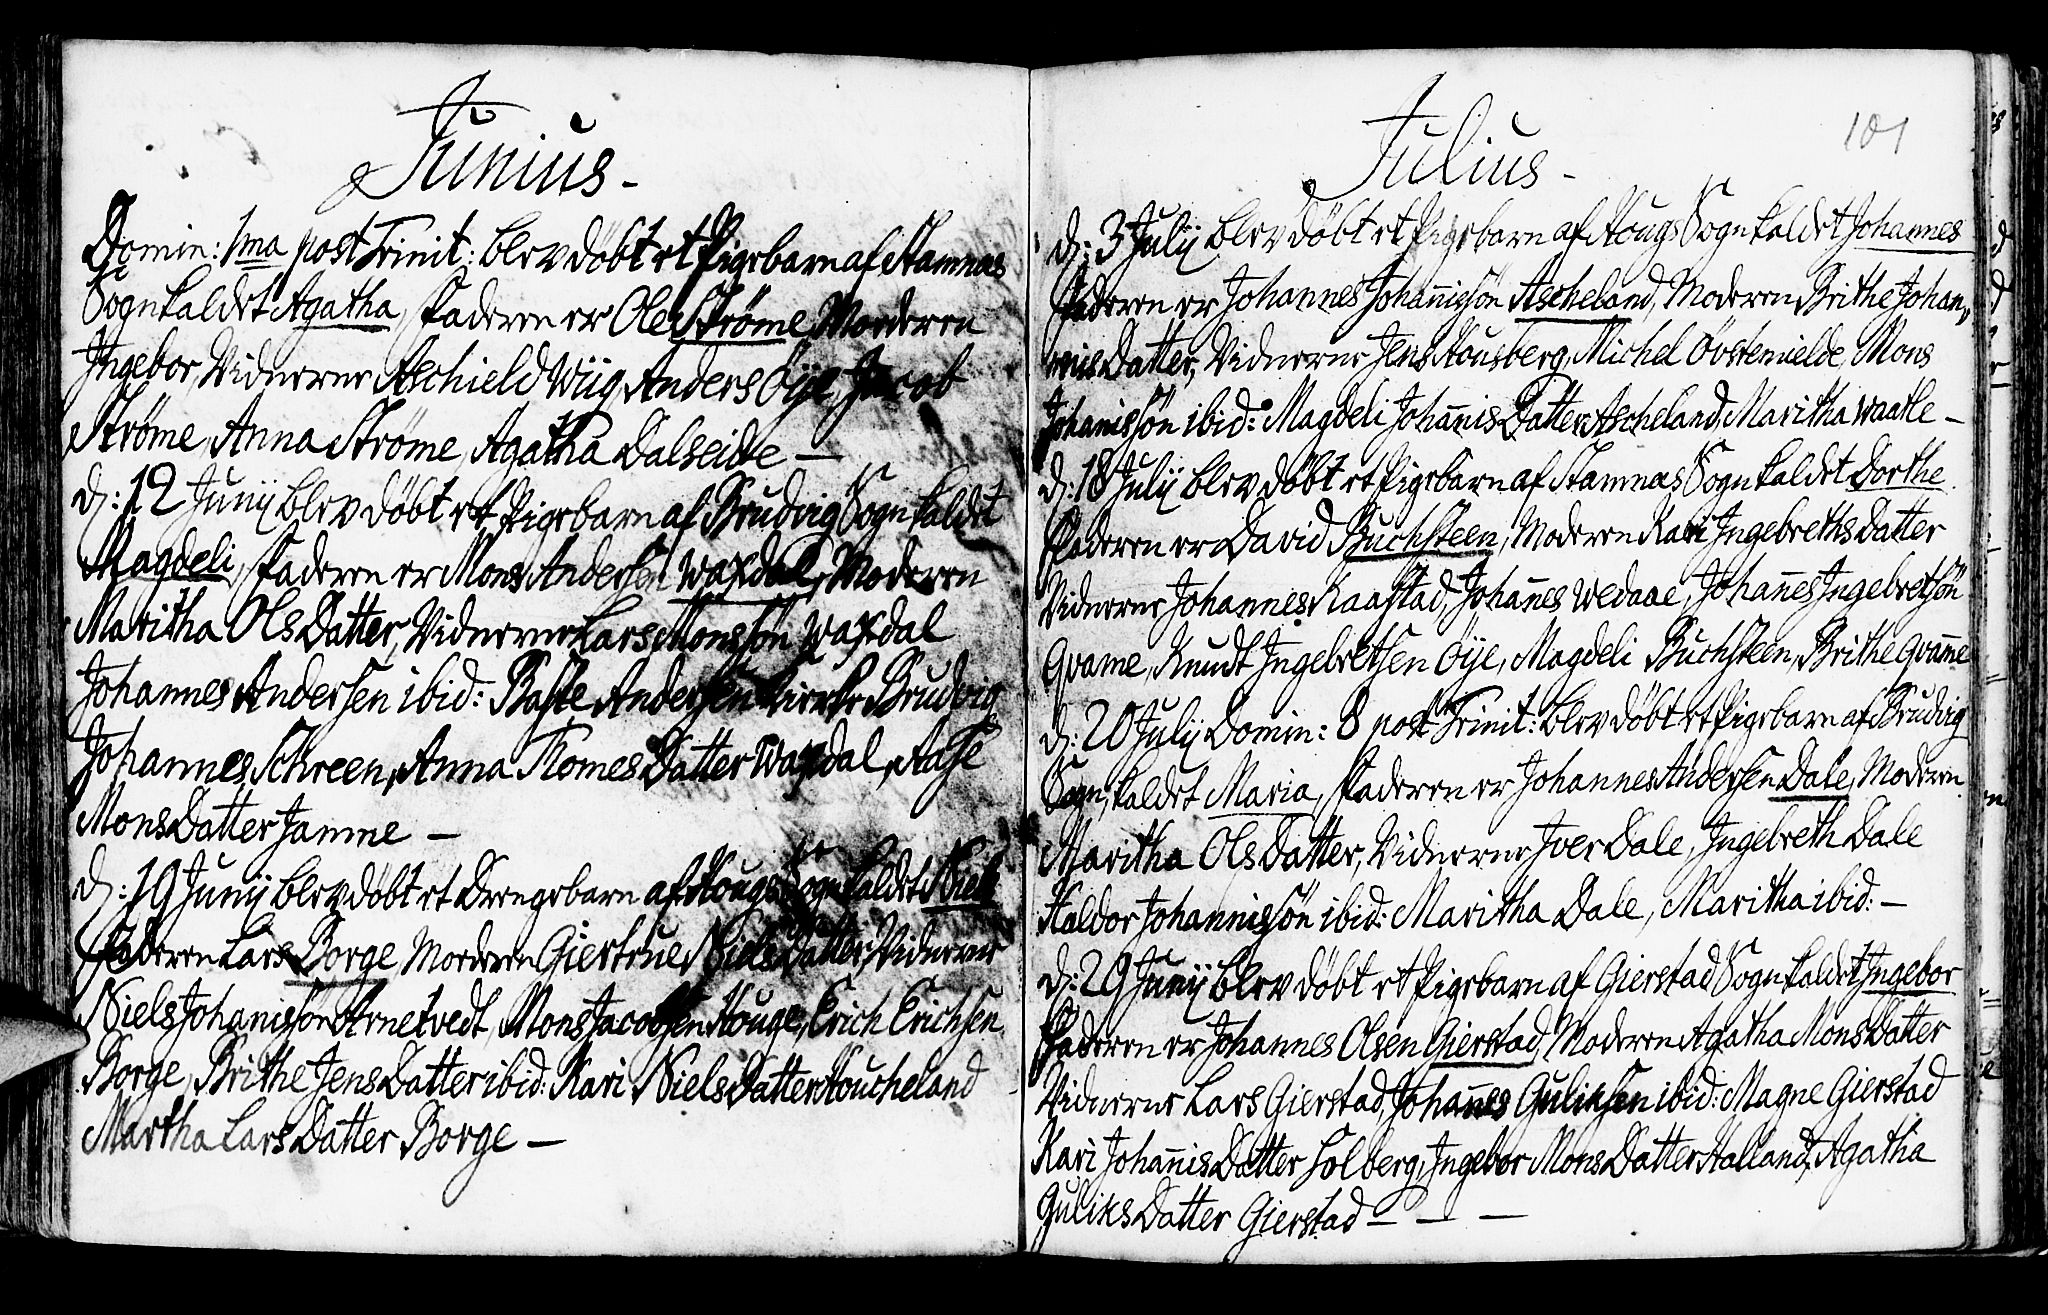 Junius -
Domin: 1ma post Trinit: blev döbt et Pigebarn af Stamnæs
Sogn kaldet Agatha, Faderen er Ole Ströme, Moderen
Ingebor, Vidnerne Aschield Wiig, Anders Öÿe, Jacob
Ströme, Anna Ströme, Agatha Dalseide —
d: 12 Junij blev döbt et Pigebarn af Brudvig Sogn kaldet
Magdeli, Faderen er Mons Andersen Waxdal, Moderen
Maritha Ols Datter, Vidnerne Lars Monssön Waxdal
Johannes Andersen ibid: Baste Andersen Brudvig
Johannes Schreen, Anna Thomes Datter Waxdal, Aase
Mons Datter Jamne —
d: 19 Junij blev döbt et Drengebarn af Hougs Sogn kaldet Niels
Faderen Lars Borge, Moderen Giertrue Niels Datter, Vidnerne
Niels Johanissön Arnetvedt, Mons Jacobsen Houge, Erich Erichsen
Borge, Brithe Jens Datter ibid: Kari Niels Datter Houcheland
Martha Lars Datter Borge —
Julius -
101
d: 3 Julij blev döbt et Pigebarn af Hougs Sogn kaldet Johannes
Faderen er Johannes Johañissön Ascheland, Moderen Brithe Johan,,
nis Datter, Vidnerne Jens Housberg, Michel Övstemielde, Mons
Johanissön ibid: Magdeli Johañis Datter Ascheland, Maritha Waatle —
d: 18 Julij blev döbt et Pigebarn af Stamnæs Sogn kaldet Dorthe
Faderen er David Buchsteen, Moderen Kari Ingebreths Datter
Vidnerne Johannes Kaastad, Johañes Wedaae, Johañes Ingebretsön
Qvame, Knudt Ingebretsen Öÿe, Magdeli Buchsteen, Brithe Qvam̄e
d: 20 Julij Domin: 8 post Trinit: blev döbt et Pigebarn af Brudvig
Sogn, kaldet Maria, Faderen er Johannes Andersen Dale, Moderen
Maritha Ols Datter, Vidnerne Iver Dale, Ingebreth Dale
Haldor Johannissön ibid: Maritha Dale, Maritha ibid: —
d: 29 Junij blev döbt et Pigebarn af Gierstad Sogn kaldet Ingebor
Faderen er Johannes Olsen Gierstad, Moderen Agatha Mons Datter
Vidnerne Lars Gierstad, Johañes Guliksen ibid: Magne Gierstad
Kari Johañis Datter Solberg, Ingebor Mons Datter Halland, Agatha
Guliks Datter Gierstad — — —